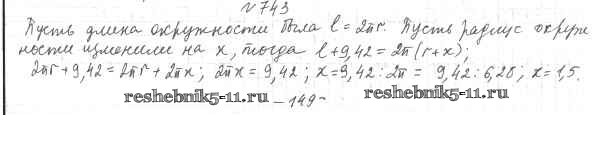 №743
Пусть длина окружности была l = 2πr. Пусть радиус окруж
ности изменили на x, тогда l+9,42 = 2π(r+x);
2πr+9,42=2πr+2πx; 2πx = 9,42; x=9,42:2π = 9,42:6,28; x=1,5.
reshebnik5-11.ru
reshebnik5-11.ru
-149-